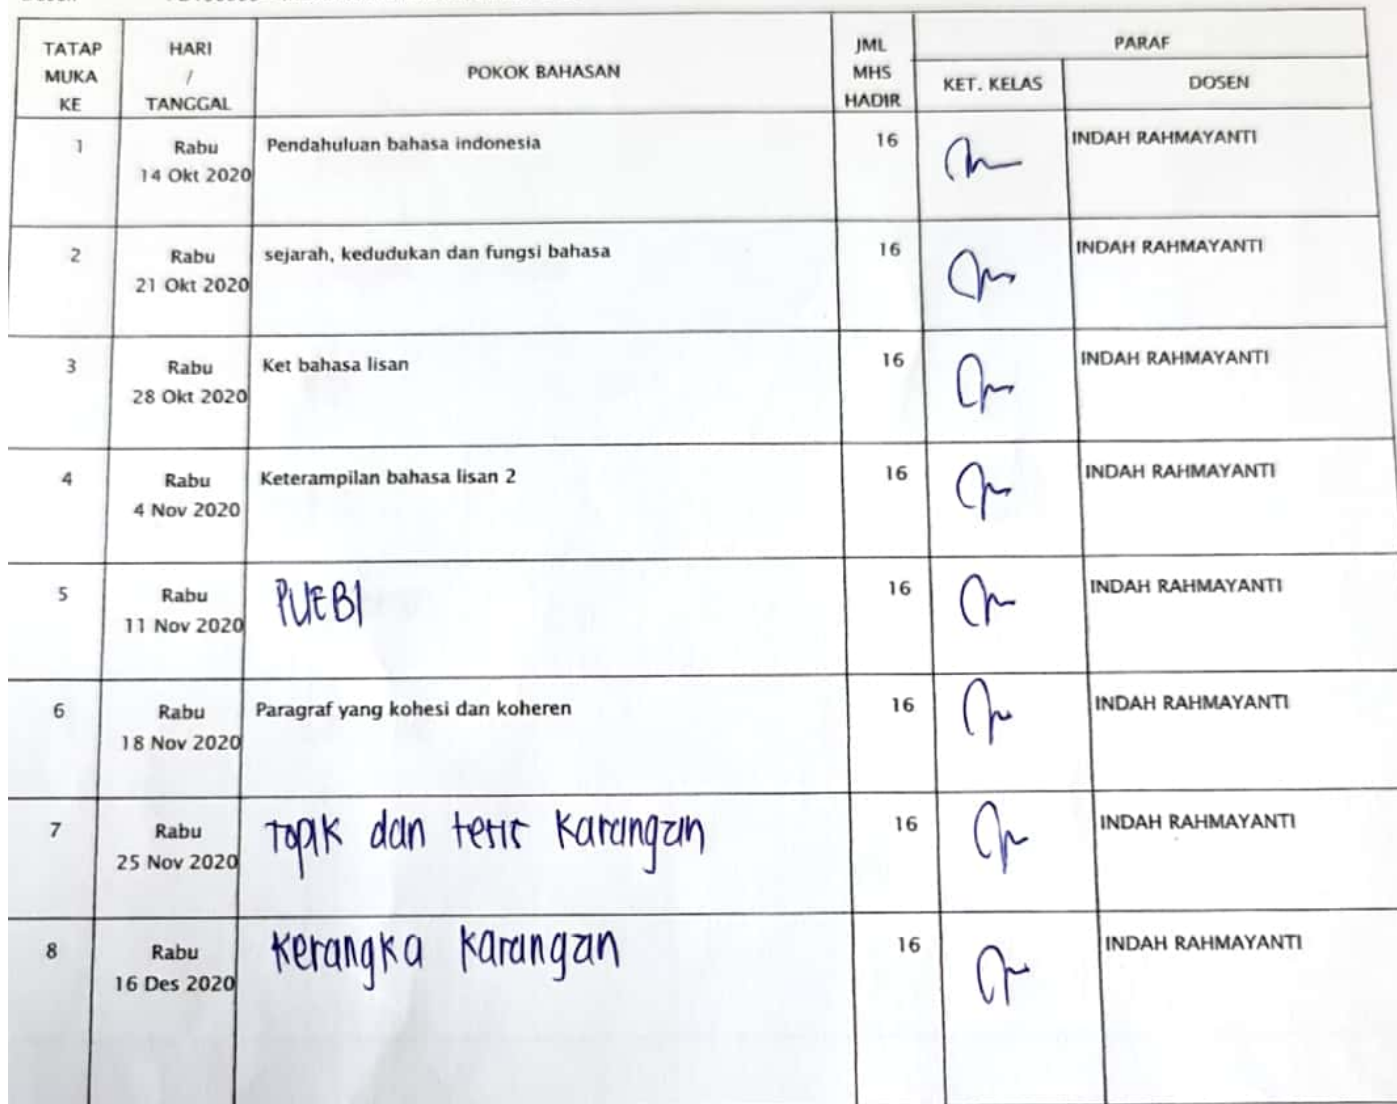 TATAP MUKA KE | HARI / TANGGAL | POKOK BAHASAN | JML MHS HADIR | PARAF
KET. KELAS | DOSEN
1 | Rabu 14 Okt 2020 | Pendahuluan bahasa indonesia | 16 | INDAH RAHMAYANTI
2 | Rabu 21 Okt 2020 | sejarah, kedudukan dan fungsi bahasa | 16 | INDAH RAHMAYANTI
3 | Rabu 28 Okt 2020 | Ket bahasa lisan | 16 | INDAH RAHMAYANTI
4 | Rabu 4 Nov 2020 | Keterampilan bahasa lisan 2 | 16 | INDAH RAHMAYANTI
5 | Rabu 11 Nov 2020 | PUEBI | 16 | INDAH RAHMAYANTI
6 | Rabu 18 Nov 2020 | Paragraf yang kohesi dan koheren | 16 | INDAH RAHMAYANTI
7 | Rabu 25 Nov 2020 | Topik dan tesis karangan | 16 | INDAH RAHMAYANTI
8 | Rabu 16 Des 2020 | Kerangka karangan | 16 | INDAH RAHMAYANTI